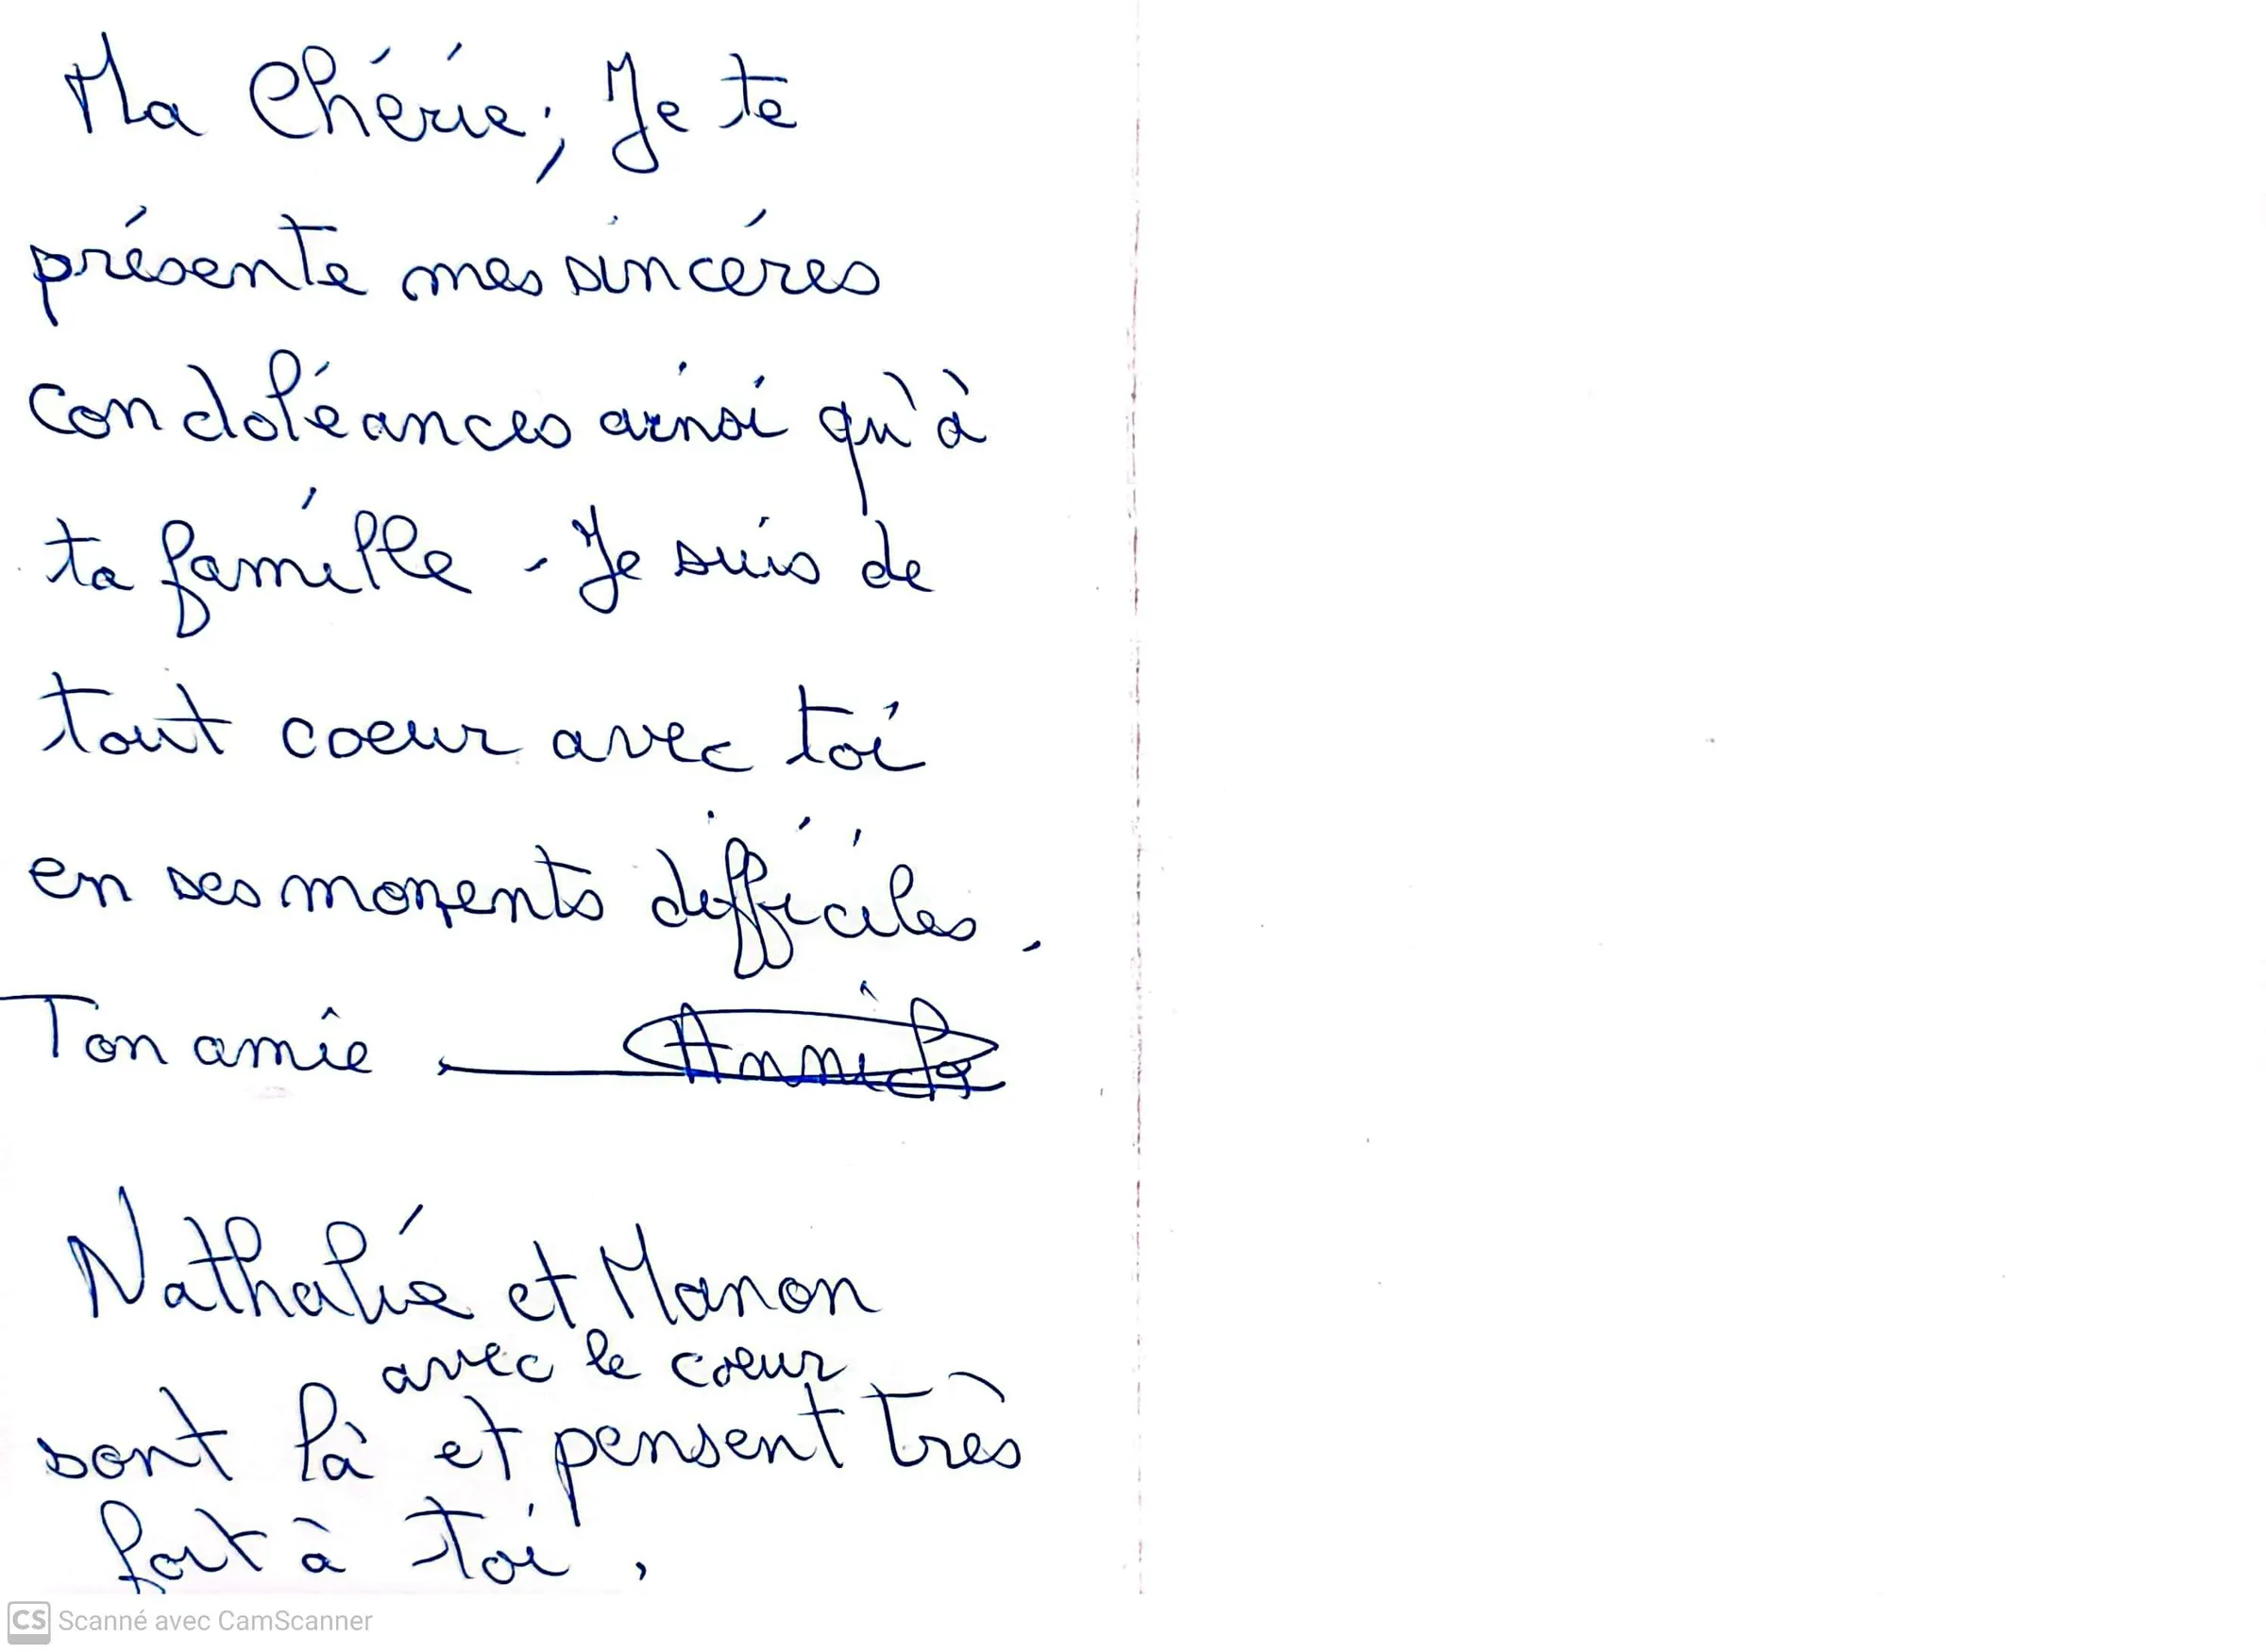 Ma Chérie, Je te
présente mes sincéres
condoléances ainsi qu'à
ta famille - Je suis de
tout coeur avec toi
en ses moments difficiles.
Ton amie
Nathalie et Manon
avec le cœur
sont là et pensent très
fort à toi.
CS Scanné avec CamScanner